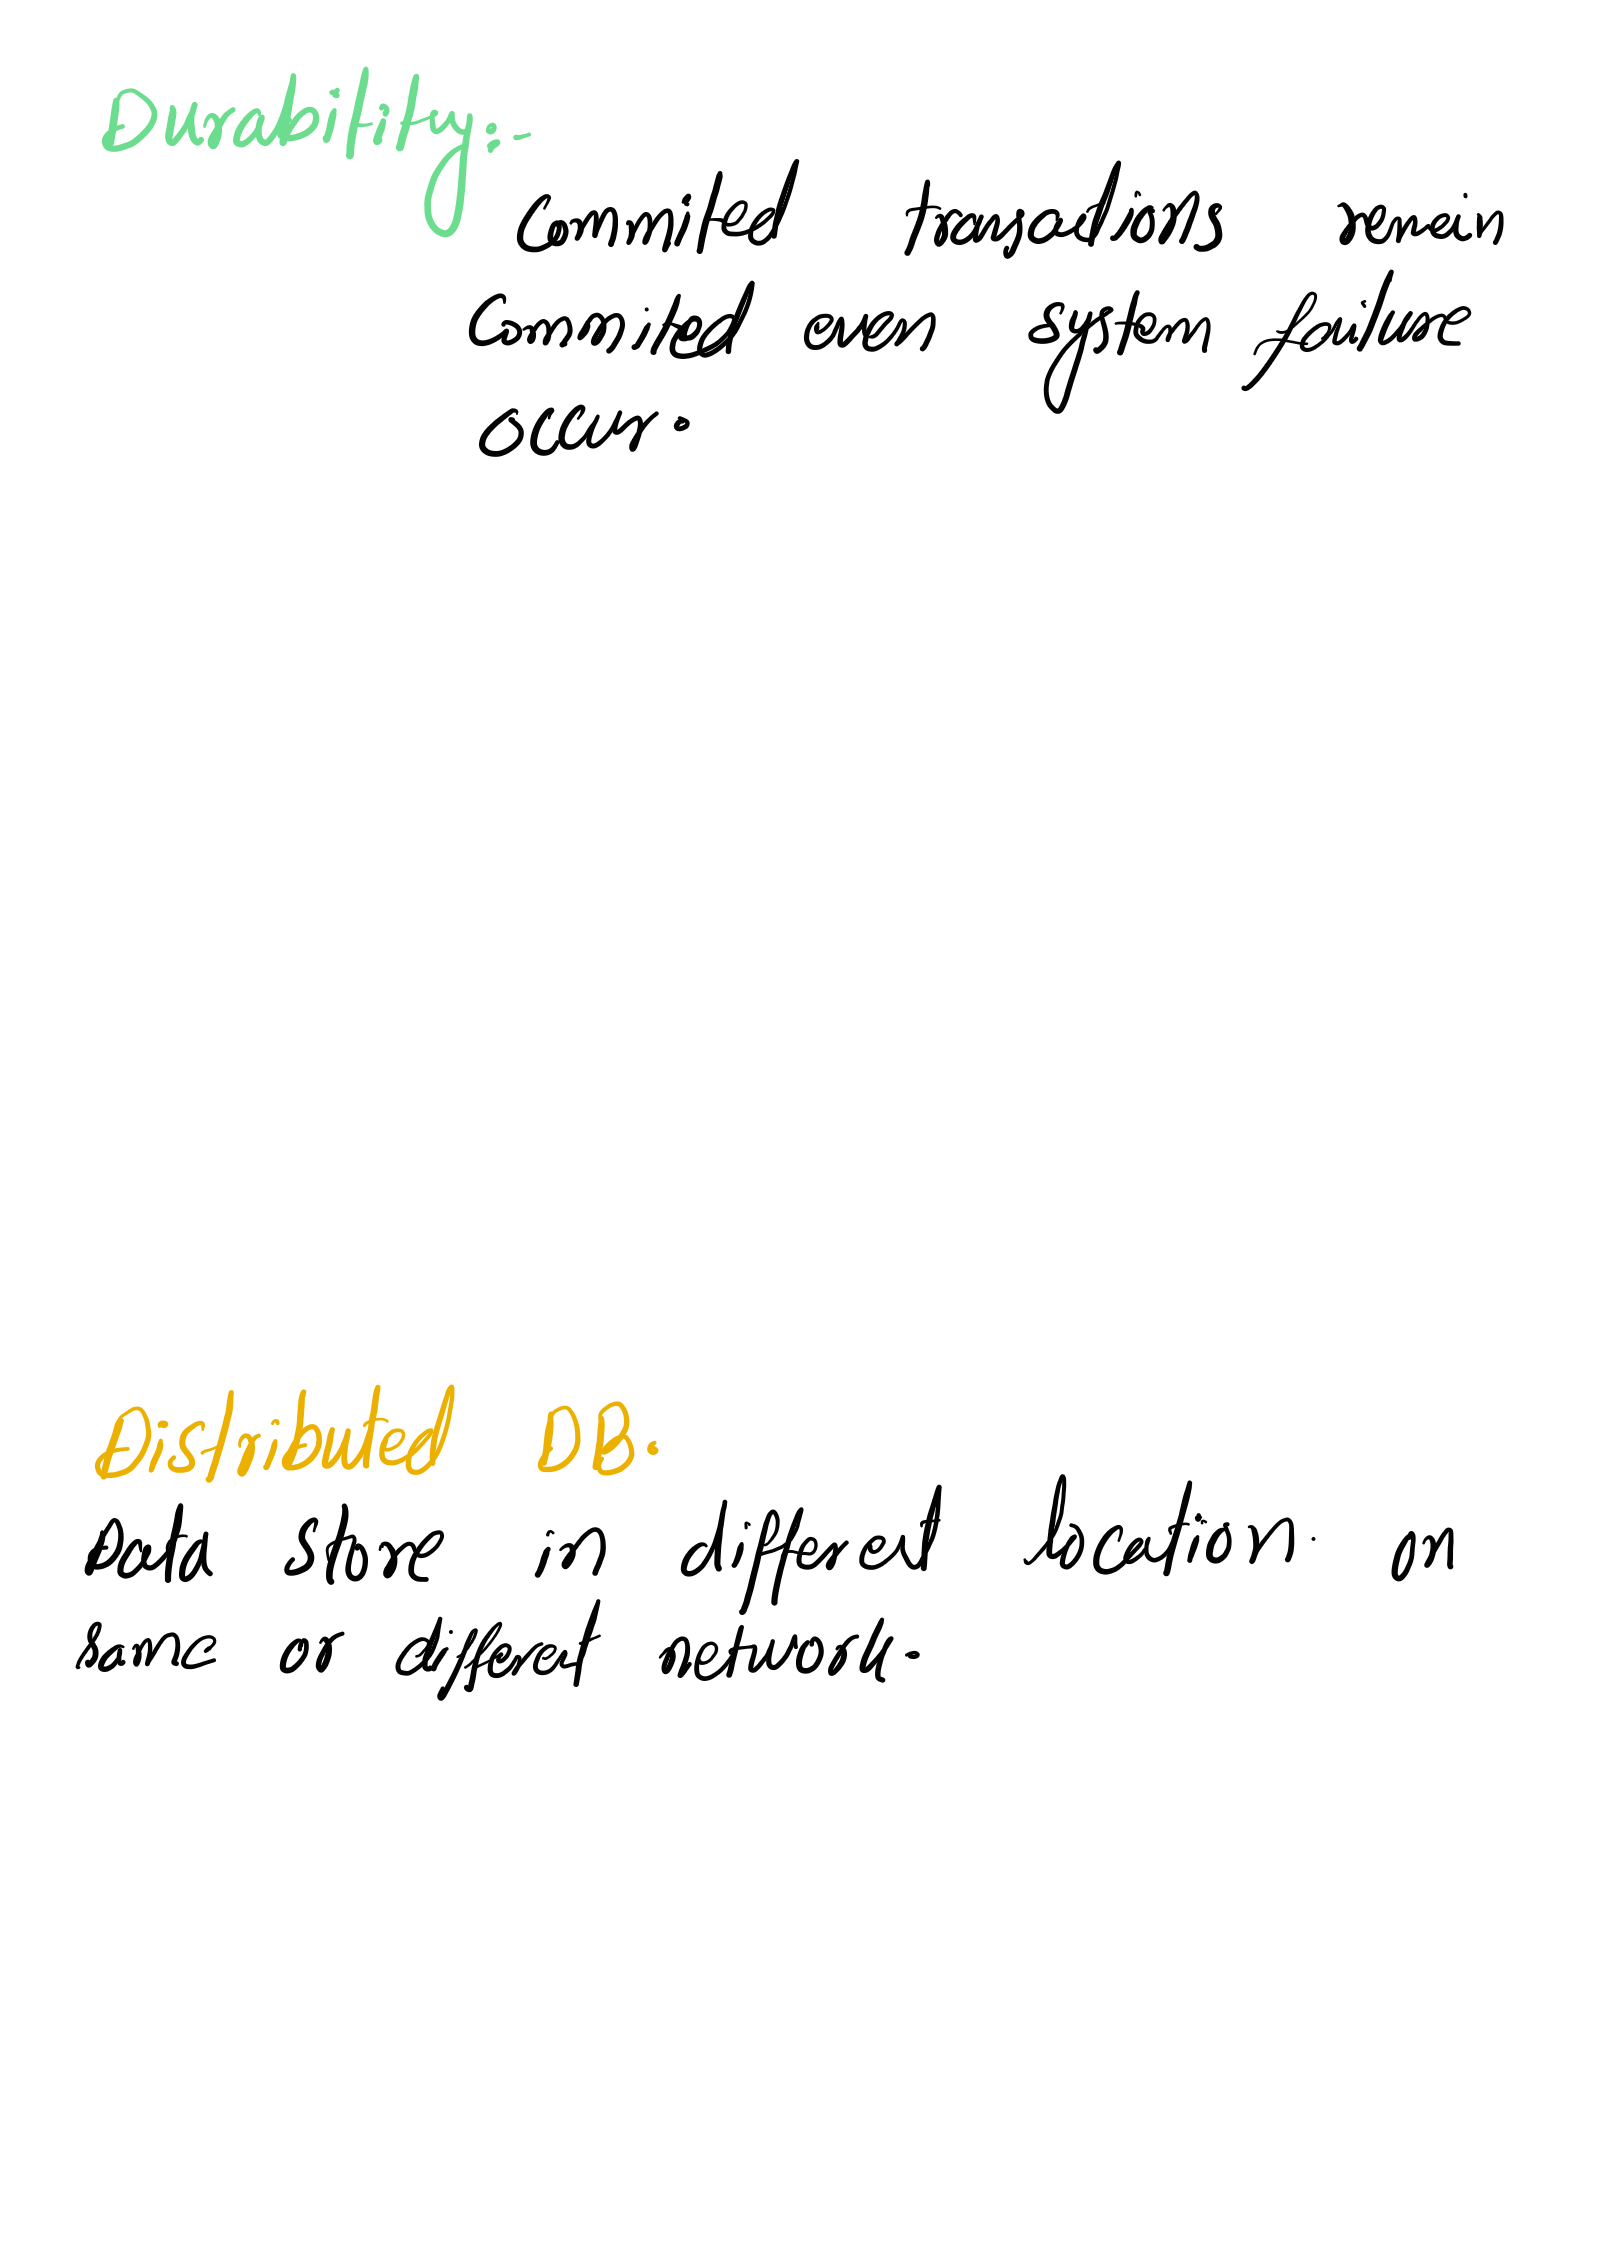 Durability:-
Commited transactions remain
Commited even system failure
occur.
Distributed DB.
Data store in different location on
same or different network.